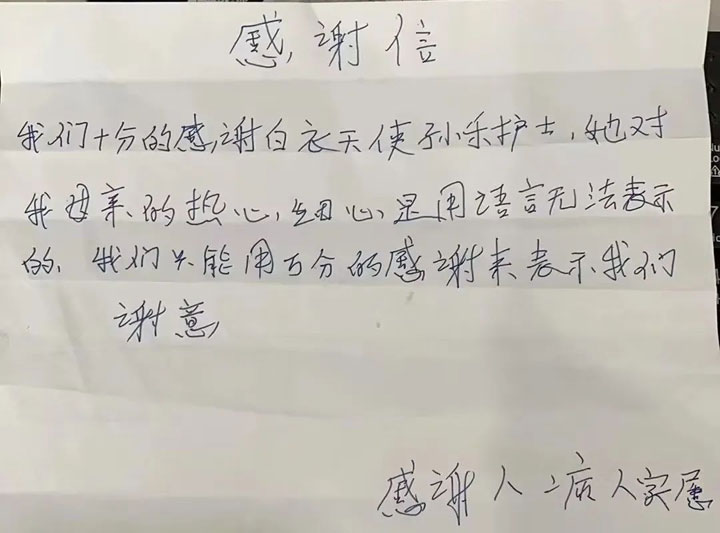 感谢信
我们十分的感谢白衣天使孙乐护士，她对
我母亲的热心，细心，是用语言无法表示
的，我们只能用百分的感谢来表示我们
谢意
感谢人：病人家属